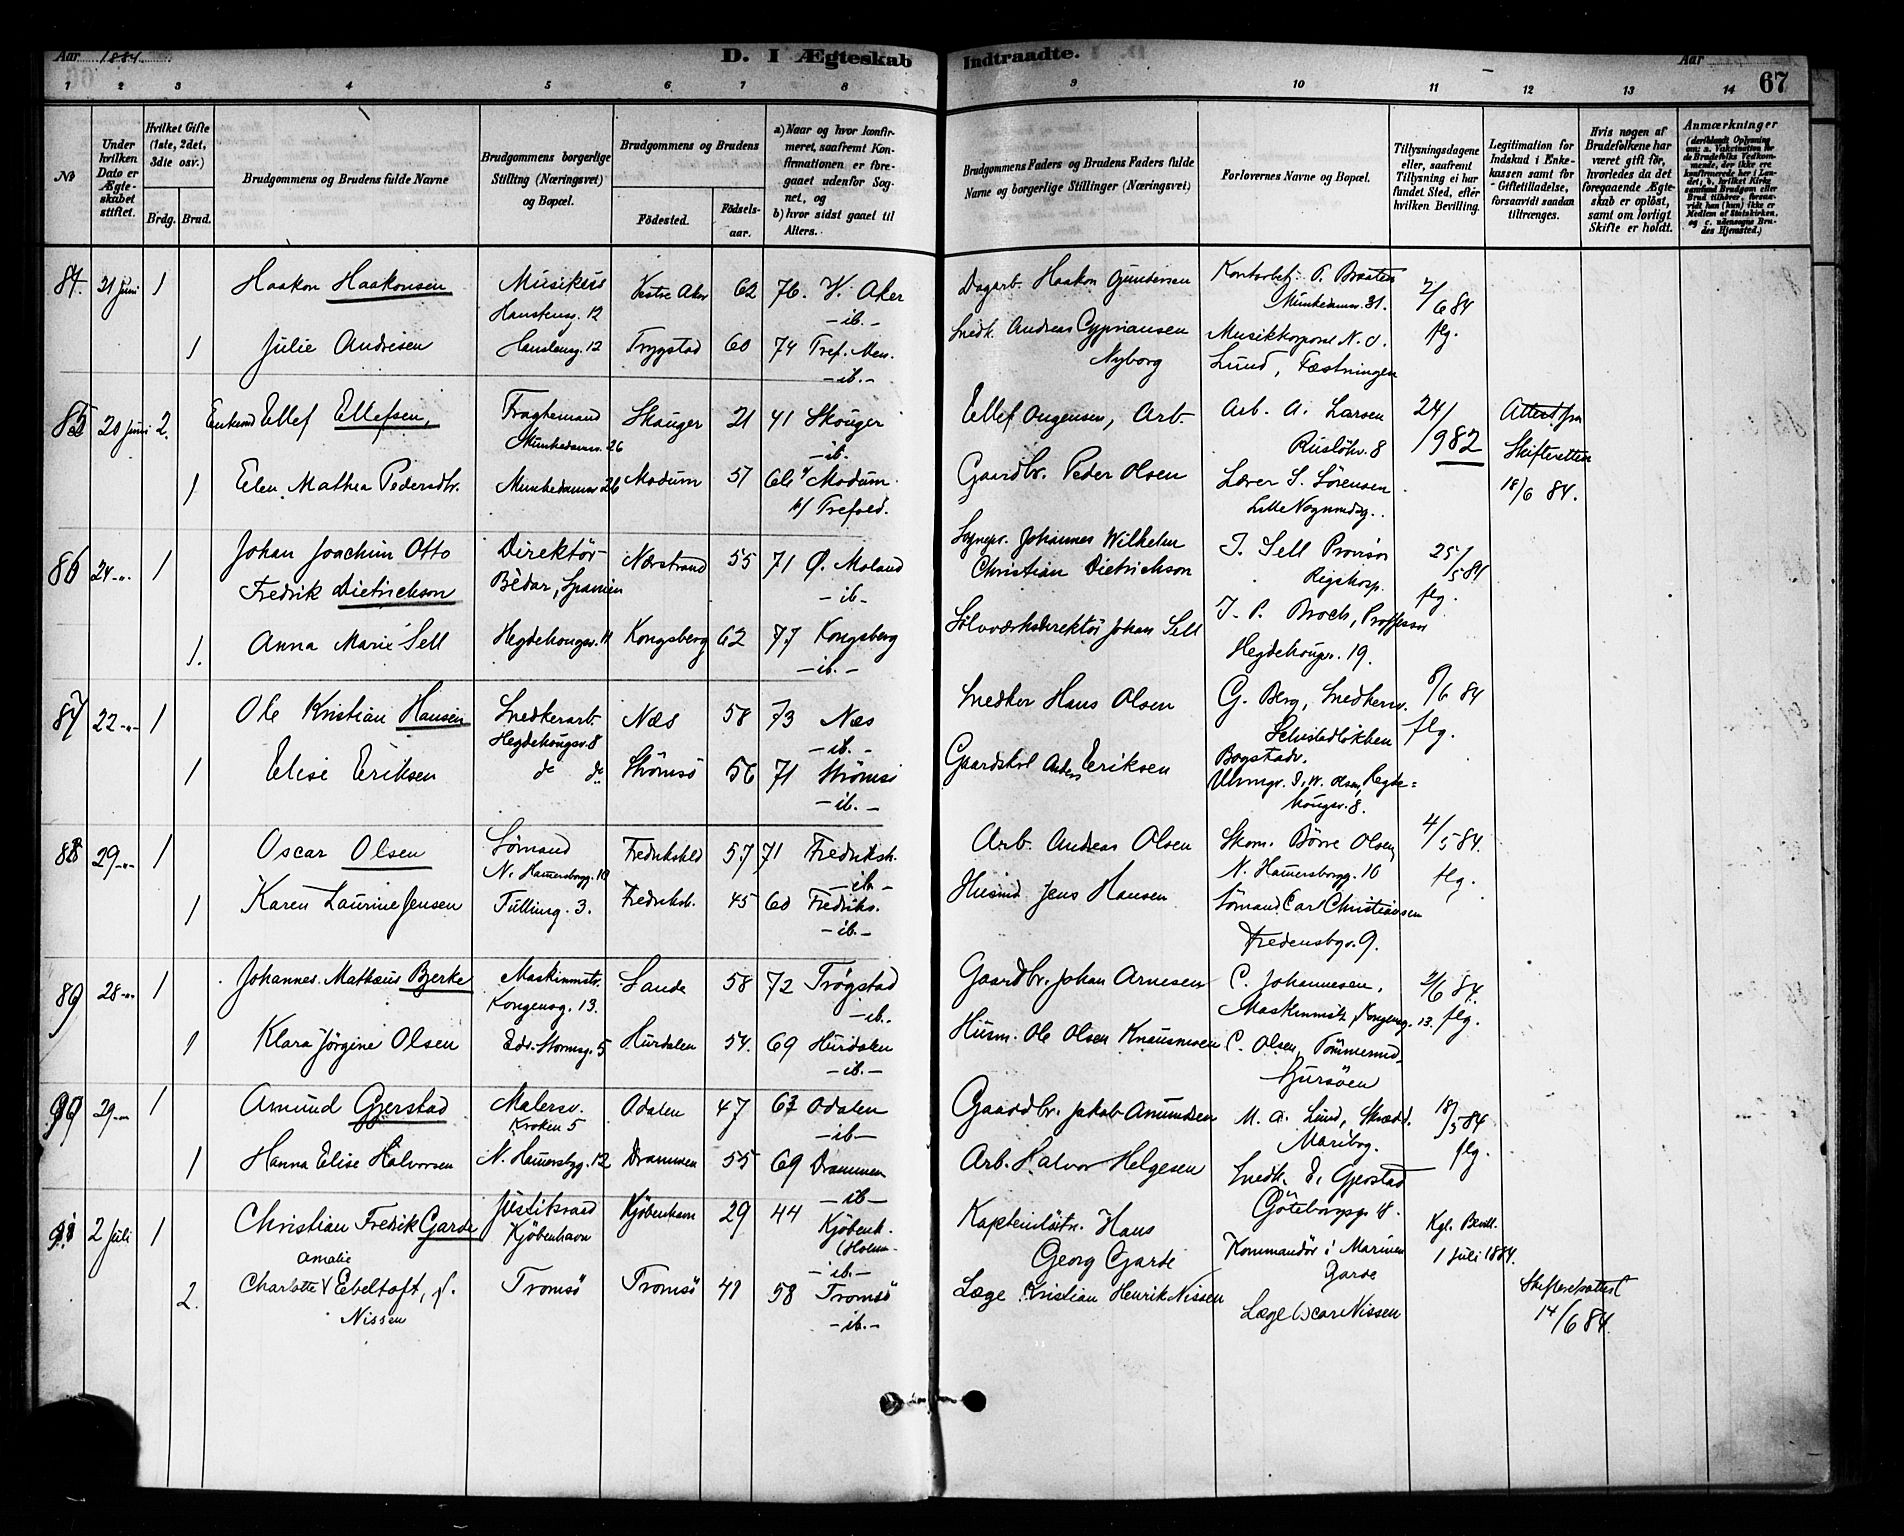 Aar 1884.
D. I Ægteskab Indtraadte.
Aar
67
1 2 3 4 5 6 7 8 9 10 11 12 13 14
No
Under hvilken Dato er Ægteskabet stiftet.
Hvilket Gifte (1ste, 2det, 3die osv.)
Brdg. Brud.
Brudgommens og Brudens fulde Navne
Brudgommens borgerlige Stilling (Næringsvei) og Bopæl.
Brudgommens og Brudens
Födested. Födselsaar.
a) Naar og hvor konfirmeret, saafremt Konfirmationen er foregaaet udenfor Sognet, og
b) hvor sidst gaaet til Alters.
Brudgommens Faders og Brudens Faders fulde Navne og borgerlige Stillinger (Næringsvei)
Forlovernes Navne og Bopæl.
Tillysningsdagene eller, saafremt Tillysning ei har fundet Sted, efter hvilken Bevilling.
Legitimation for Indskud i Enkekassen samt for Giftetilladelse, forsaavidt saadan tiltrænges.
Hvis nogen af Brudefolkene har været gift för, hvorledes da det foregaaende Ægteskab er oplöst, samt om lovligt Skifte er holdt.
Anmærkninger
84. 21 Juni 1 Haakon Haakonsen Musikelev Vestre Aker 62 76. V. Aker Dagarb. Haakon Gundersen Kontorbetj. P. Braaten 2/6 84
Hanstensg. 12 -ib.- Munkedamsv. 31. flg.
1 Julie Andrisen Hanstensg. 12 Trygstad 60 74 Tref. Men. Snedk. Andreas Cypriansen Musikkorporal N. J.
-ib.- Nyborg Lund, Fæstningen
85 20 Juni 2. Enkemd Ellef Ellefsen, Fragtemand Skouger 21 41 Skouger Ellef Ongensen, Arb. Arb. A. Larsen 24/ Attest fra
Munkedamsv. 26 -ib.- Ruslökv. 8 1982 Skifteretten
1 Elen Mathea Pedersdtr. Munkedamsv 26 Modum 51 Modum. Gaardbr. Peder Olsen S. Sörensen 18/6 84.
b/ Trefold.
86 24-"- 1 Johan Joachim Otto Direktör Nærstrand 55 71 Ö. Moland Johannes Wilhelm J. Sell Provisor 25/5 84
Fredrik Dietrichson Bédar, Spanien -ib- Christian Dietrichson Rigshosp. flg.
1. Anna Marie Sell Hegdehougsv. 19 Kongsberg 62 77 Kongsberg Sölvværksdirektör Johan Sell J. P. Broch, Proffessor
-ib.- Hegdehougsv. 19.
87 22-"- 1 Ole Kristian Hansen Snedkerarb. Næs 58 73 Næs Snedker Hans Olsen G. Berg, Snedkerm. 8/6 84
Hegdehougsv. 8 -ib.- Schistadlökken flg.
1 Elise Eriksen do do Strömsö 56 71 Strömsö Gaardskarl Anders Eriksen Bogstadv.
-ib.- J. W. Olsen, Hegdehougsv. 8.
88 29-"- 1 Oscar Olsen Sömand Fredrikshld 57 71 Fredriksh. Arb. Andreas Olsen Skom. Börre Olsen, 4/5 84.
N. Hamersborgg. 10 -ib.- N. Hamersborgg. 10 flg.
1 Karen Laurine Jensen Tullinsg. 3. Fredriksh. 45 60 Fredriks. Husmd. Jens Hansen Sömand Carl Christiansen
-ib.- Fredensbgv. 9.
89 28-"- 1 Johannes Mathæus Bjerke Maskinmstr. Sande 58 72 Trögstad Gaardbr. Johan Arnesen C. Johannesen, 2/6 84.
Kongensg. 13. -ib. Maskinmstr. Kongensg. 13. flg.
1 Klara Jörgine Olsen Edv. Stormsg. 5 Hurdalen 54. 69 Hurdalen Husm. Ole Olsen Knausmoen C. Olsen, Tömmermd.
-ib.- Gursöen
90 29-"- 1 Amund Gjerstad Malersv. Odalen 47 63 Odalen Gaardbr. Jakob Amundsen M. A. Lund, Skrædd. 18/5 84
Kroken 5 -ib- Maribog. flg.
1 Hanna Elise Halvorsen N. Hamersbgg. 12 Drammen 55 69 Drammen Arb. Halvor Helgesen Snedk. E. Gjerstad
-ib- Göteborgsg. 18.
91 2 Juli 1 Christian Fredrik Garde Justitsraad Kjöbenhavn 29 44 Kjöbenh. Kapteinlöitn. Hans Kommandör i Marinen Kgl. Bevill.
Kjöbenhavn (Holm- Georg Garde Garde 1 Juli 1884.
-ib.-
Amalie
2. Charlotte V Ebeltoft, f. Tromsö Tromsö 41 58 Tromsö Læge Kristian Henrik Nissen Læge Oscar Nissen Skifteretsattest
Nissen -ib.- 14/6 84.